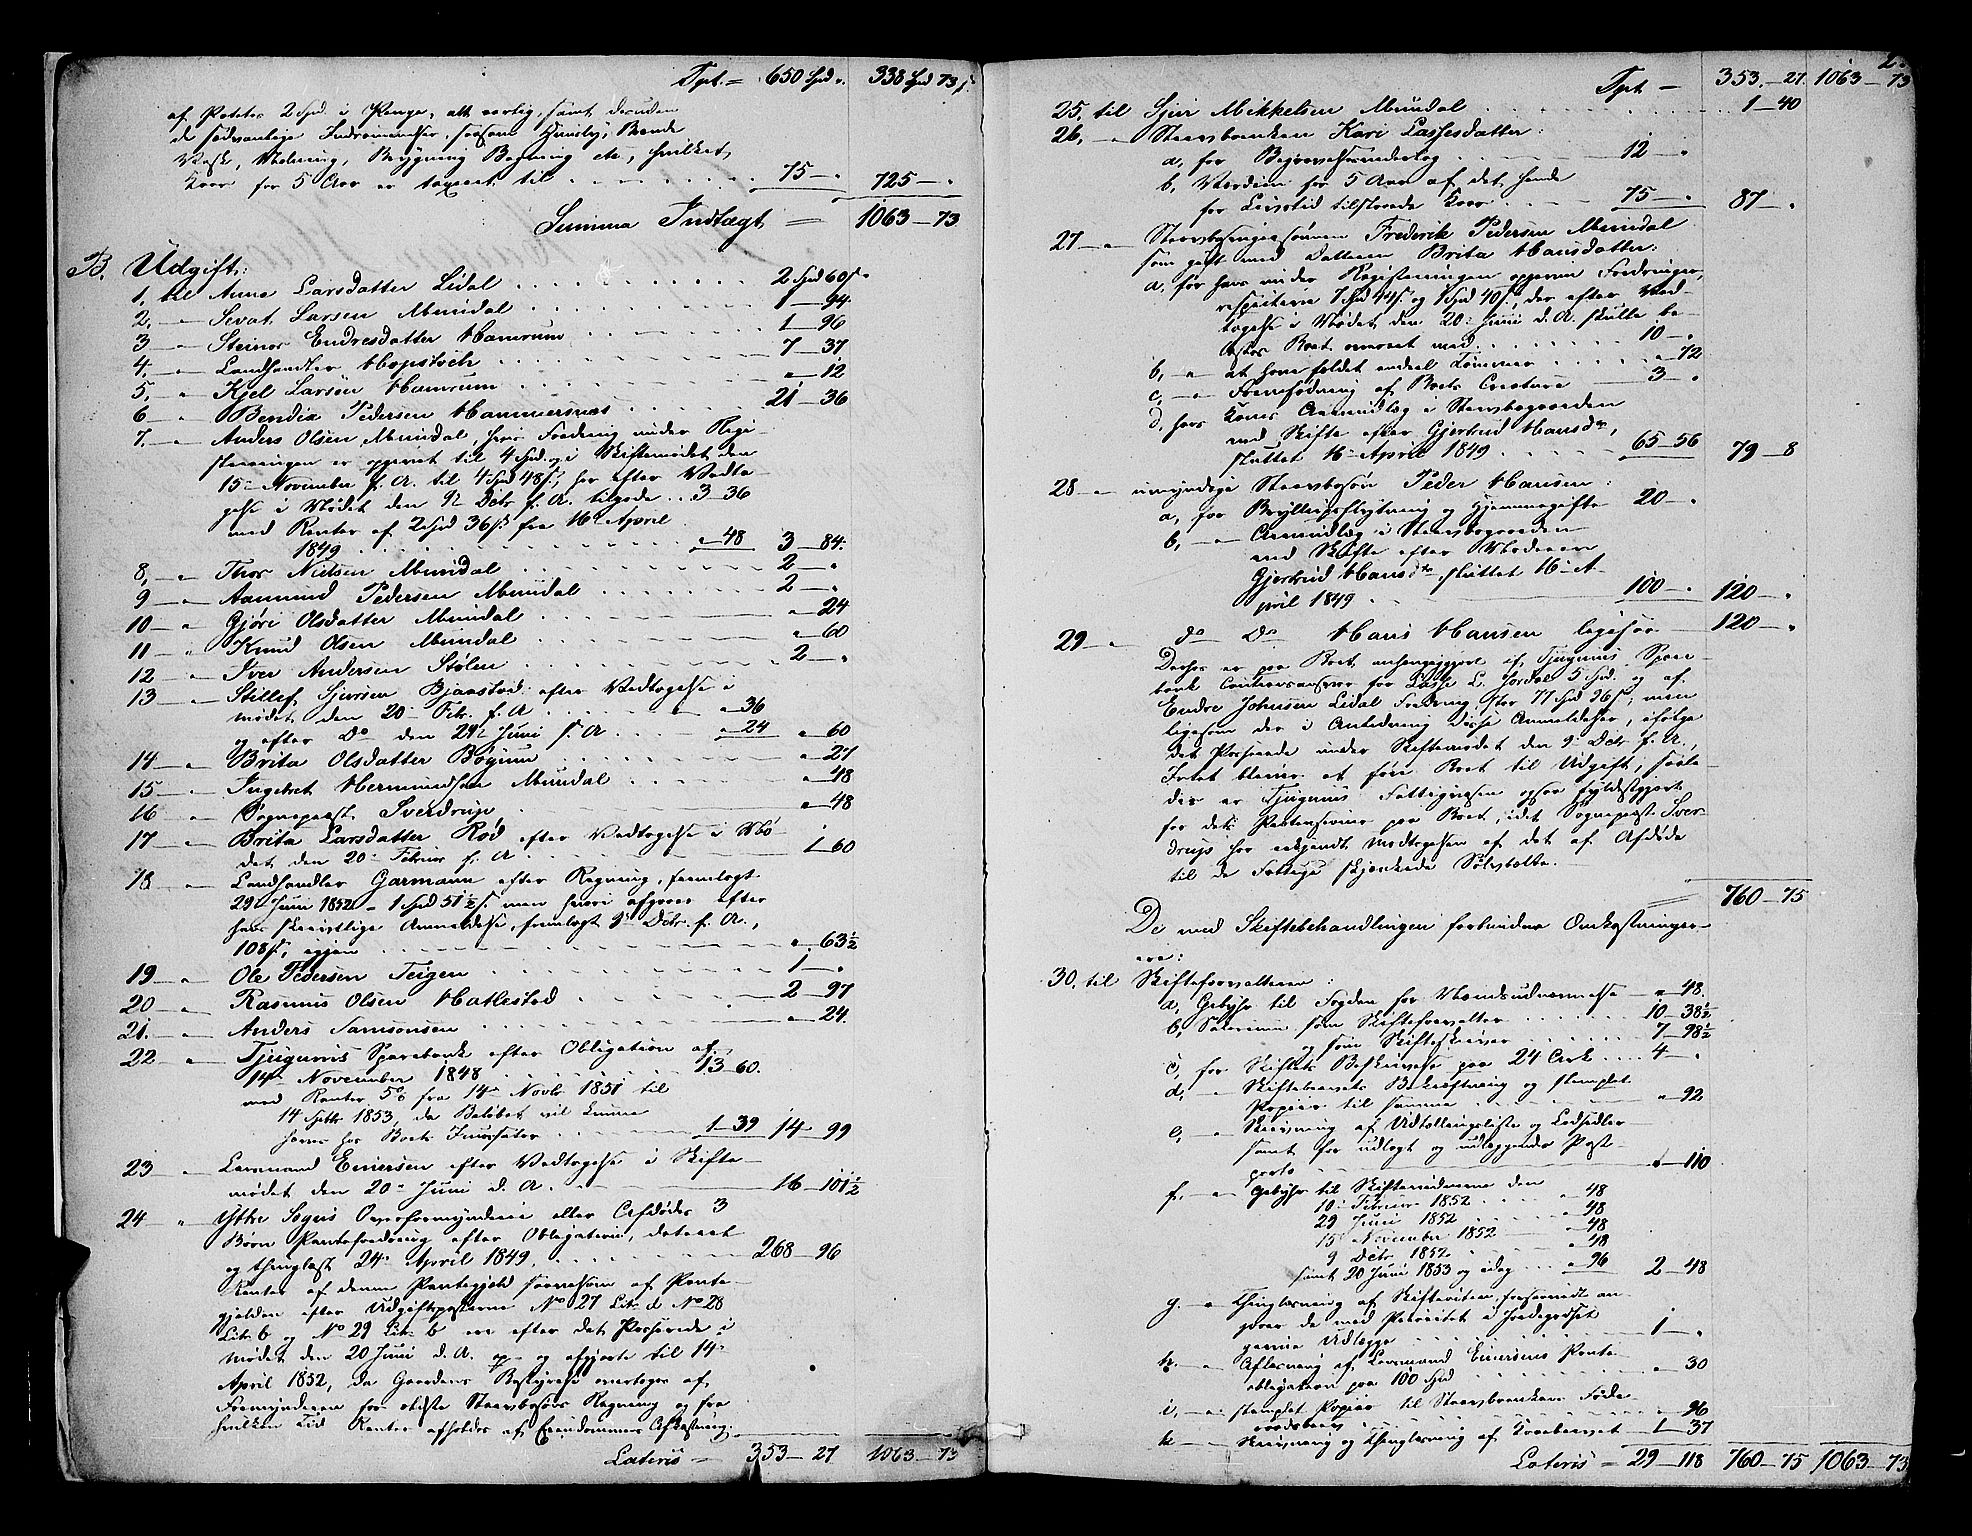 Tpt = 650 Spd „ 338 Spd 73 s.
af Poteter 2 Spd. i Penge, alt aarlig, samt desuden
de sædvanlige Indrømmelser, saasom Huusly, Brende
Vask, Brygning Bagning etc, hvilket
Kaar for 5 Aar er taxeret til 75 — „ 725 — „
Summa Indtægt = 1063 — 73
B. Udgift:
1, til Anna Larsdatter Lidal 2 Spd 60 s.
2, — „ Sevat Larsen Mundal 1 — 94
3 — „ Steinor Endresdatter Hamrum 1 — 96
4, — „ Landhandler Hopstock 7 — 37
5, — „ Kjel Larsen Hamrum „ — 12
6 — „ Bendix Pedersen Hammersnæs 21 — 36
7, — „ Anders Olsen Mundal, hvis Fordring under Regi-
streringen er opgivet til 4 Spd. og i Skiftemødet den
15de November f. A. til 4 Spd 48 s, har efter Vedta-
gelse i Mødet den 9de Dcbr f. A. tilgode 3 — 36
med Renter af 2 Spd 36 s fra 16de April
1849 „ — 48 3 — 84.
8, — „ Thor Nielsen Mundal 2 — „
9 — „ Aamund Pedersen Mundal 2 — „
10 — „ Gjøri Olsdatter Mundal „ — 24
11 — „ Knud Olsen Mundal „ — 60
12 — „ Iver Andersen Stølen 2 — „
13 — „ Stillef Sjursen Bjaastad efter Vedtagelse i
mødet den 20de Febr. f. A „ — 36
og efter Do den 29de Juni f. A „ — 24 „ — 60
14 — „ Brita Olsdatter Bøyum „ — 27
15 — „ Ingebret Hermundsen Mundal „ — 48
16 — „ Sognepræst Sverdrup „ — 48
17 — „ Brita Larsdatter Rød efter Vedtagelse i Mø-
det den 20de Februar f. A 1 — 60
18 — „ Landhandler Garmann efter Regning, fremlagt
29de Juni 1852 = 1 Spd 51½ s. men hvori afgaaer efter
hans skriftlige Anmeldelse, fremlagt 9de Dcbr. f. A.,
108 s, igjen „ — 63½
19 — „ Ole Pedersen Teigen 1 — „
20 — „ Rasmus Olsen Hatlestad 2 — 97
21. — „ Anders Samsonsen „ — 24.
22 — „ Tjugums Sparebank efter Obligation af
14de November 1848 13 — 60.
med Renter 5% fra 14de Novbr 1851 til
14 Sptbr 1853, da Beløbet vil kunne
hæves hos Boets Incassator 1 — 39 14 — 99
23 — „ Lensmand Einersen efter Vedtagelse i Skifte-
mødet den 20de Juni d. A. 16 — 101½
24 — „ Ytre Sogns Overformynderie eller Afdødes 3
Børn Pantefordring efter Obligation, dateret
og thinglæst 24de April 1849. 268 — 96
Renter af denne Pantegjeld saavelsom af Pante-
gjelden efter Udgiftsposterne No 27 Litr. d No 28
Litr. b og No 29 Litr. b ere efter det Passerede i
Mødet den 20 Juni d. A. op- og afgjorte til 14de
April 1852, da Gaardens Bestyrelse overtoges af
Formynderen for ældste Stervbosøns Regning og fra
hvilken Tid Renter afholdes af Eiendommens Afkastning.
Lateris = 353 — 27 1063 — 73
Tpt — 353 — 27 1063 — 73
25, til Sjur Mikkelsen Mundal 1 — 40
26, — „ Stervboenken Kari Lassesdatter:
a, for Begravelsesudlæg 12 — „
b, Værdien for 5 Aar af det hende
for Livstid tilstaaede Kaar 75 — „ 87 — „
27 — „ Stervbosviersønnen Frederik Pedersen Mundal
som gift med Datteren Brita Hansdatter:
a, for hans under Registreringen opgivne Fordringer,
respective 7 Spd 44 s. og 1 Spd 40 s, der efter Ved-
tagelse i Mødet den 20de Juni d. A. skulle be-
Boet med 10 — „
b, — „ at have fældet endeel Tømmer „ — 72
c, — „ Fremfødning af Boets Creature 3 — „
d, hans Kones Arveudlæg i Stervbogaarden
ved Skifte efter Gjertrud Hansdtr,
sluttet 16de April 1849 65 — 56 79 — 8
28 — „ umyndige Stervbosøn Peder Hansen:
a, for Bryllupsbekostning og Hjemmegifte 20 — „
b, — „ Arveudlæg i Stervbogaarden
ved Skifte efter Moderen
Gjertrud Hansdtr sluttet 16de A-
pril 1849 100 — „ 120 — „
29 — „ do Do Hans Hansen ligesaa 120 — „
Derhos er paa Boet anhængiggjort af Tjugums Spare-
bank Cautionsansvar for Lasse L. Jordal 5 Spd. og af
Endre Johnsen Lidal Fordring stor 77 Spd 96 s, men
ligesom der i Anledning disse Anmeldelser, ifølge
det Passerede under Skiftemødet den 9de Dcbr f. A.,
Intet bliver at føre Boet til Udgift, saale-
des er Tjugums Fattigvæsen ogsaa fyldestgjort
for dets Prætensioner paa Boet, idet Sognepræst Sver-
drup har erkjendt Modtagelsen af det af Afdøde
til de Fattige skjænkede Sølvbælte.
760 — 75
De med Skiftebehandlingen forbundne Omkostninger
ere:
30. til Skifteforvalteren:
a, Gebyhr til Fogden for Mændsudnævnelse „ — 48.
b, Salarium som Skifteforvalter 10 — 38½
og som Skifteskriver 7 — 98½
c, for Skiftets Beskrivelse paa 24 Ark 4 — „
d, — „ Skiftebrevets Bekræftning og stemplet
Papiir til samme „ — 92
e, — „ Skrivning af Udtællingsliste og Lodsedler
samt for udlagt og udlæggende Post-
porto „ — 110
f, — „ Gebyhr til Skiftevidnerne den
10de Februar 1852 „ — 48
29 Juni 1852 „ — 48
15 November 1852 „ — 48
9 Dcbr 1852 „ — 48
samt 20 Juni 1853 og idag „ — 96 2 — 48
g. — „ Thinglæsning af Skifteextract, forsaavidt an-
gaaer de med Prioritet i Jordegodset
givne Udlægge 1 — „
h. — „ Aflæsning af Lensmand Einersens Pante-
obligation paa 100 Spd „ — 30
i, — „ stemplet Papiir til Stervboenkens Føde-
raadsbrev „ — 96
k — „ Skrivning og Thinglæsning af Kaarbrevet 1 — 37
Lateris = 29 — 118 760 — 75 1063 — 73